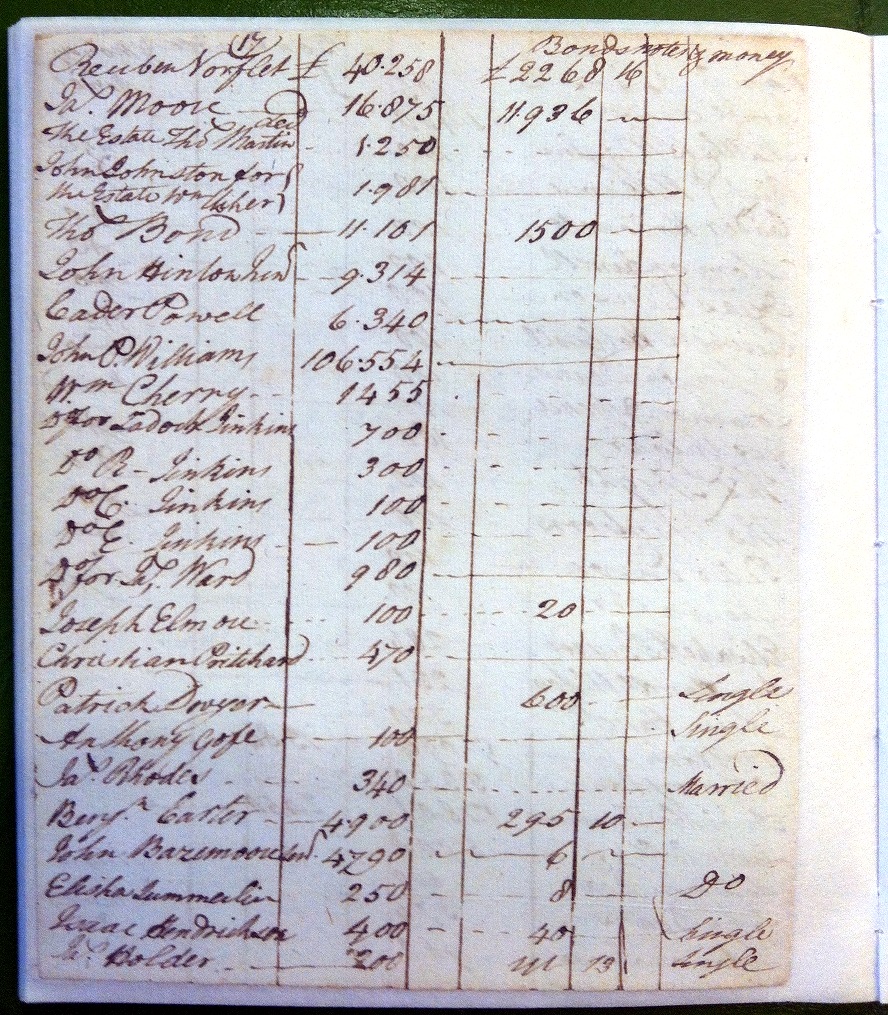 17 Bonds notes & money
Reuben Norflet £ 40.258 £ 2268 16
Jas. Moore 16.875 11.936
ded
The Estate Thos Martin 1.250
John Johnston for
the Estate Wm 1.981
Thos Bond 11.161 1500
John 9.314
Cader Powell 6.340
John P. Williams 106.554
Wm Cherry 1455
Do for Zadock Jinkins 700
Do R- Jinkins 300
Do C. Jinkins 100
Do E. Jinkins 100
Do for Jas. Ward 980
Joseph Elmore 100 20
Christian Pritchard 470
Patrick Dwyer 600 Single
Anthony 100 Single
Jas. Rhodes 340 Married
Benjn. Easter 4900 295 10
John Bazemoore 4790 6
Elisha Summerlin 250 8 Do
Isaac Hendrickson 400 40 Single
Jas. Holder 200 13 Single